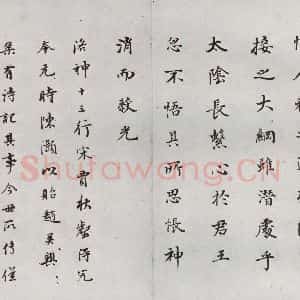 接之大綱雖潛處乎
太陰長繫心於君王
忽不悟其所思悵神
消而蔽光
洛神十三行宋賈秋壑得
元時陳灝以貽趙吳興
集有詩記其事今世所傳僅
Shufawang.CN